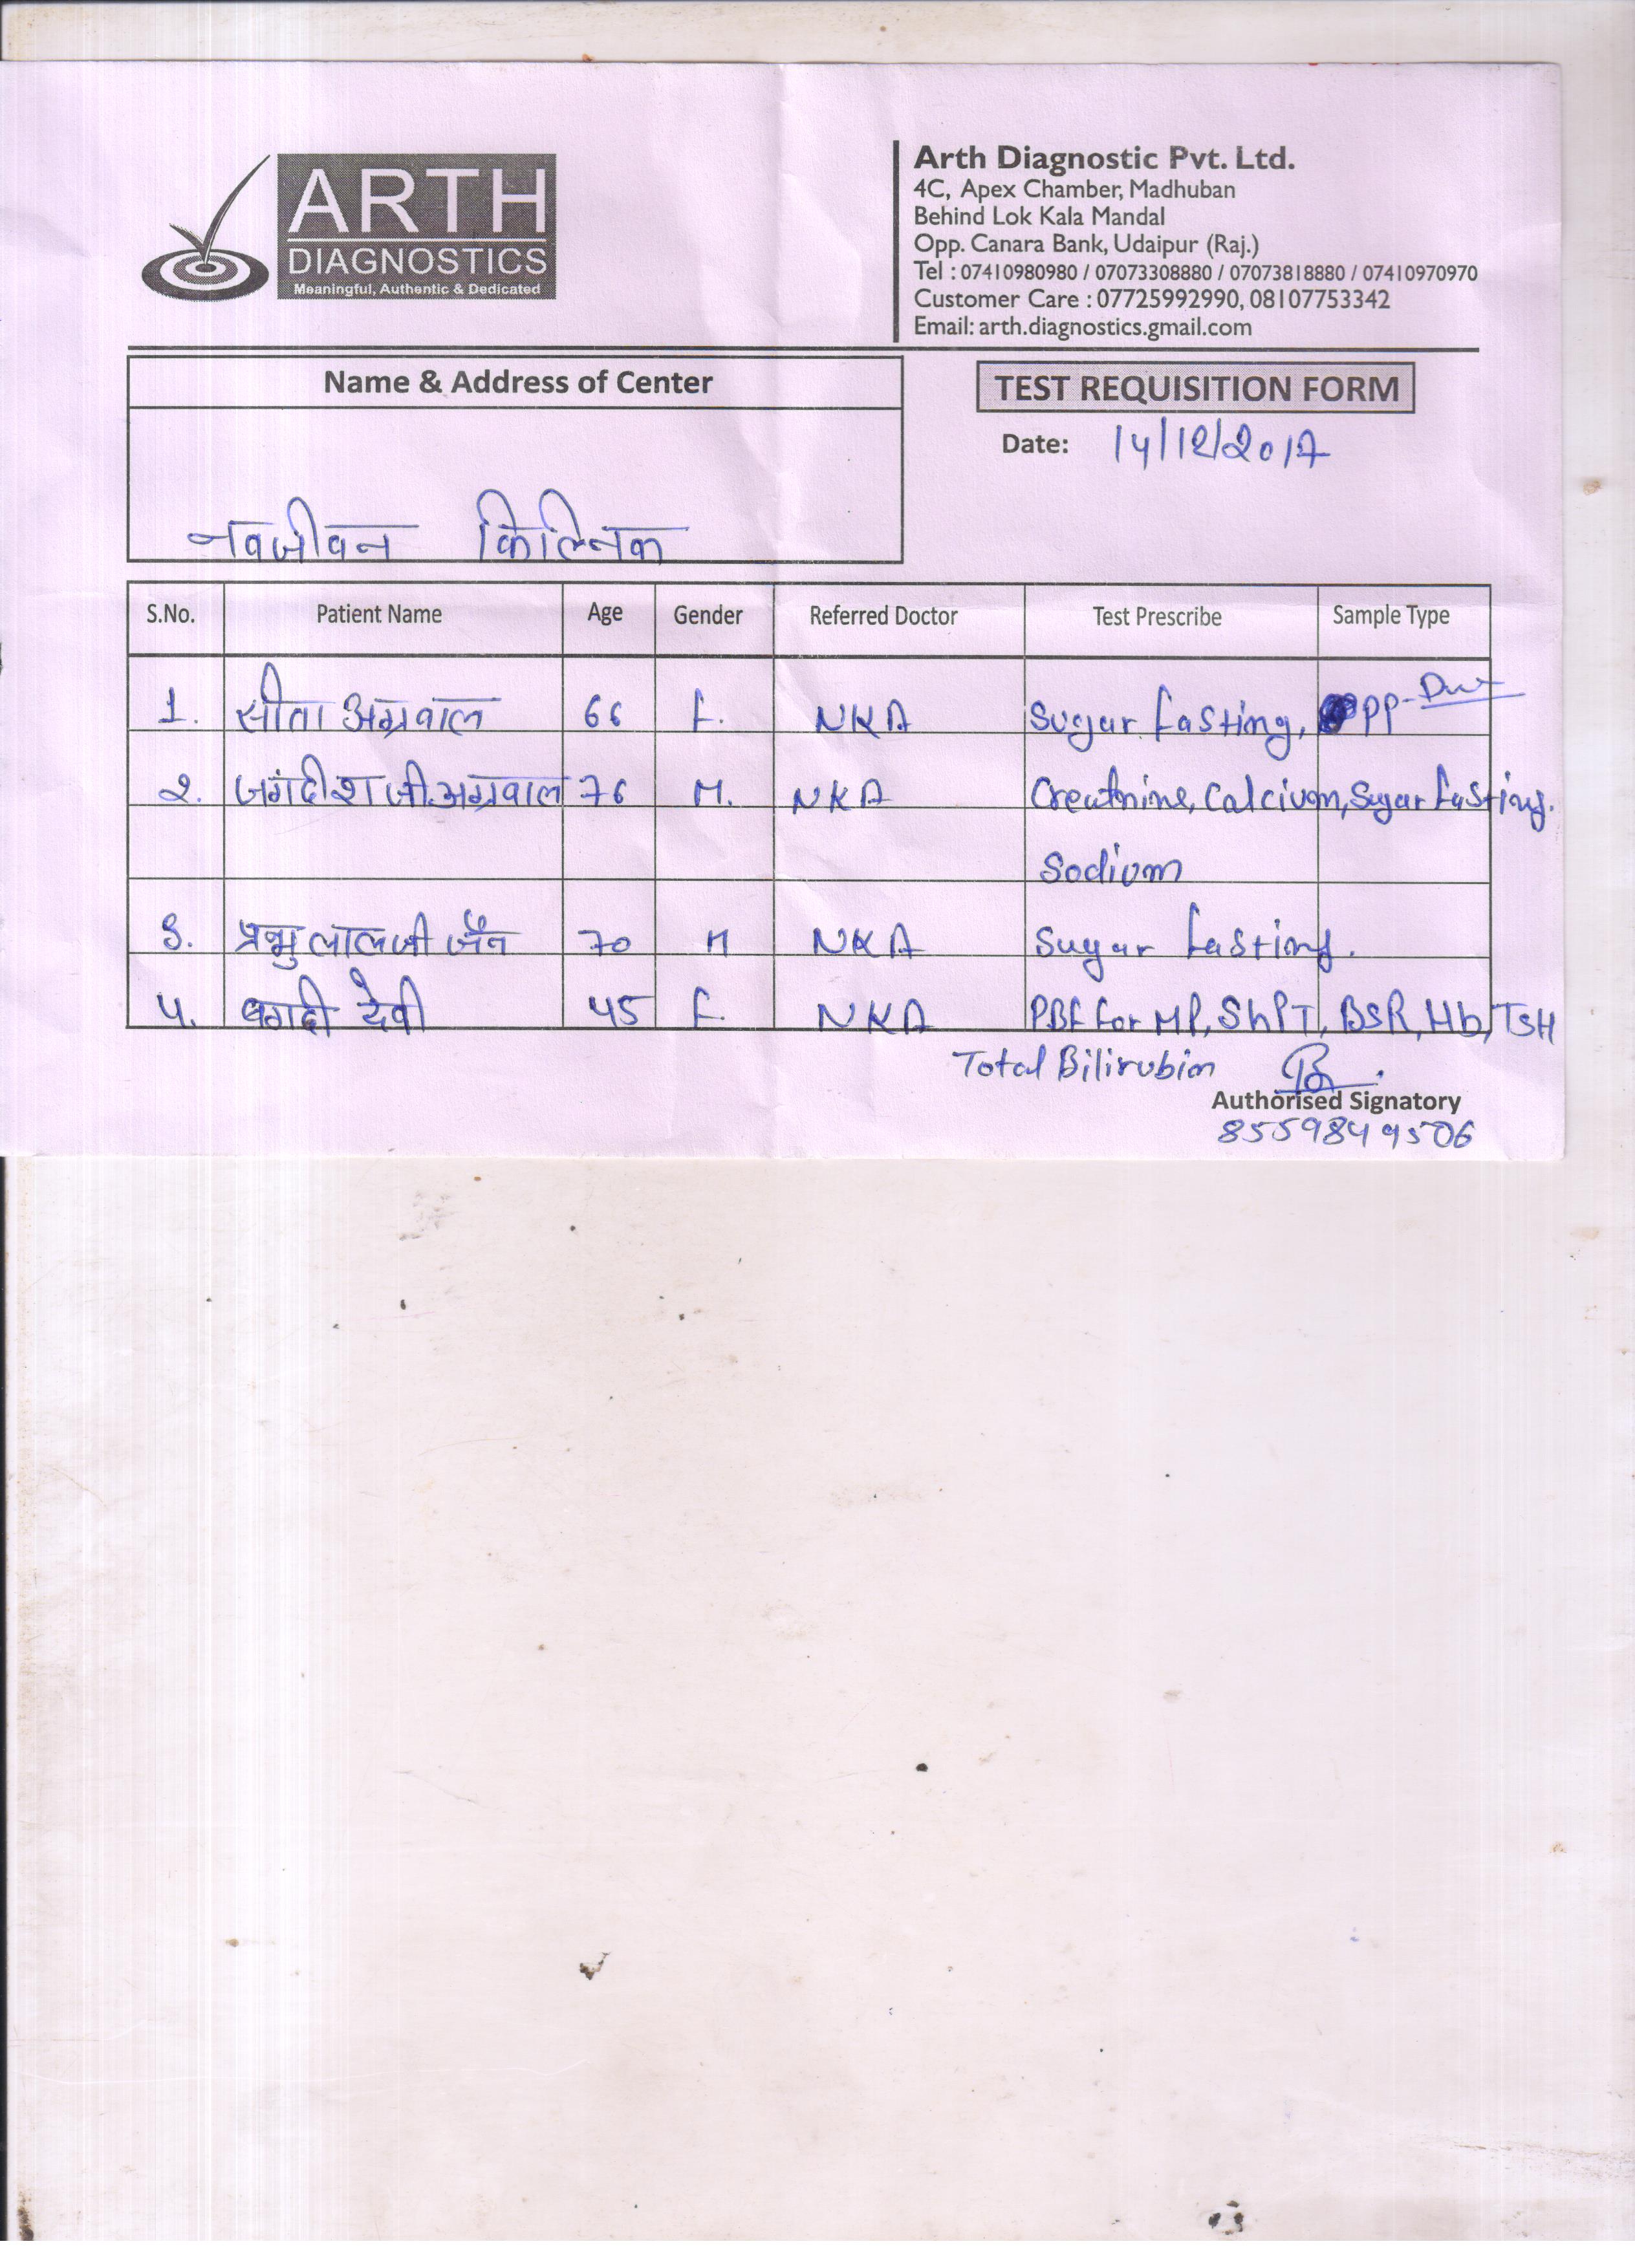 ARTH
DIAGNOSTICS
Meaningful, Authentic & Dedicated
Arth Diagnostic Pvt. Ltd.
4C, Apex Chamber, Madhuban
Behind Lok Kala Mandal
Opp. Canara Bank, Udaipur (Raj.)
Tel : 07410980980 / 07073308880 / 07073818880 / 07410970970
Customer Care : 07725992990, 08107753342
Email: arth.diagnostics.gmail.com
Name & Address of Center
TEST REQUISITION FORM
Date: 14/12/2017
नवजीवन क्लिनिक
S.No. Patient Name Age Gender Referred Doctor Test Prescribe Sample Type
1. सीता अग्रवाल 66 F. NKA Sugar fasting, PP-Due
2. जगदीश जी अग्रवाल 76 M. NKA Creatnine, Calcium, Sugar fasting.
Sodium
3. प्रभु लालजी जैन 70 M NKA Sugar fasting.
4. बगदी देवी 45 F. NKA PBF for MP, ShPT, BSR, Hb, TSH
Total Bilirubin
Authorised Signatory
8559849506